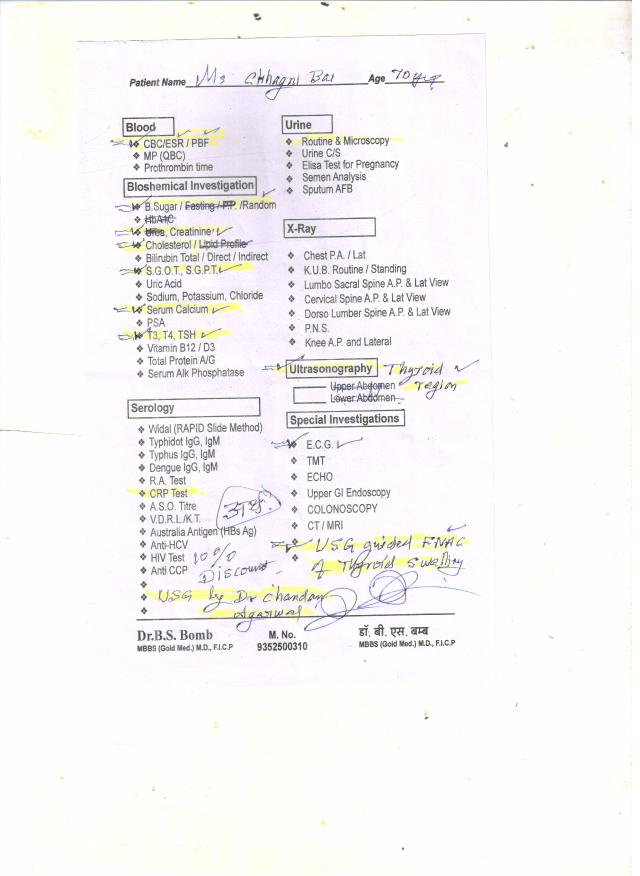 Patient Name Ms Chhagni Bai Age 70 yrs
Blood
CBC/ESR / PBF
MP (QBC)
Prothrombin time
Bioshemical Investigation
B.Sugar / Fasting / P.P. /Random
HbA1C
Urea, Creatinine
Cholesterol / Lipid Profile
Bilirubin Total / Direct / Indirect
S.G.O.T., S.G.P.T.
Uric Acid
Sodium, Potassium, Chloride
Serum Calcium
PSA
T3, T4, TSH
Vitamin B12 / D3
Total Protein A/G
Serum Alk Phosphatase
Serology
Widal (RAPID Slide Method)
Typhidot IgG, IgM
Typhus IgG, IgM
Dengue IgG, IgM
R.A. Test
CRP Test
A.S.O. Titre
V.D.R.L./K.T.
Australia Antigen (HBs Ag)
Anti-HCV
HIV Test 10%
Anti CCP Discount
USG by Dr Chandan
Agarwal
Urine
Routine & Microscopy
Urine C/S
Elisa Test for Pregnancy
Semen Analysis
Sputum AFB
X-Ray
Chest P.A. / Lat
K.U.B. Routine / Standing
Lumbo Sacral Spine A.P. & Lat View
Cervical Spine A.P. & Lat View
Dorso Lumber Spine A.P. & Lat View
P.N.S.
Knee A.P. and Lateral
Ultrasonography Thyroid
region
Upper Abdomen
Lower Abdomen
Special Investigations
E.C.G.
TMT
ECHO
Upper GI Endoscopy
COLONOSCOPY
CT / MRI
USG guided FNAC
of Thyroid swelling
Dr.B.S. Bomb
MBBS (Gold Med.) M.D., F.I.C.P
M. No.
9352500310
डॉ. बी. एस. बम्ब
MBBS (Gold Med.) M.D., F.I.C.P